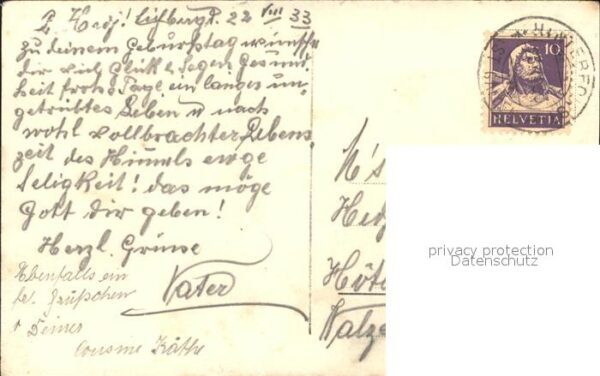 L. Hedj! 22 VIII 33
Zu deinem Geburtstag wünsche
dir viel Glück & Segen Gesund
heit frohe Tage, ein langes un-
getrübtes Leben u nach
wohl vollbrachter Lebens
zeit des Himmels ewge
Seligkeit! das möge
Gott dir geben!
Herzl. Grüsse
Vater
Ebenfalls ein
Grüßchen
v Deiner
Cousine Käthe
10
HELVETIA
privacy protection
Datenschutz